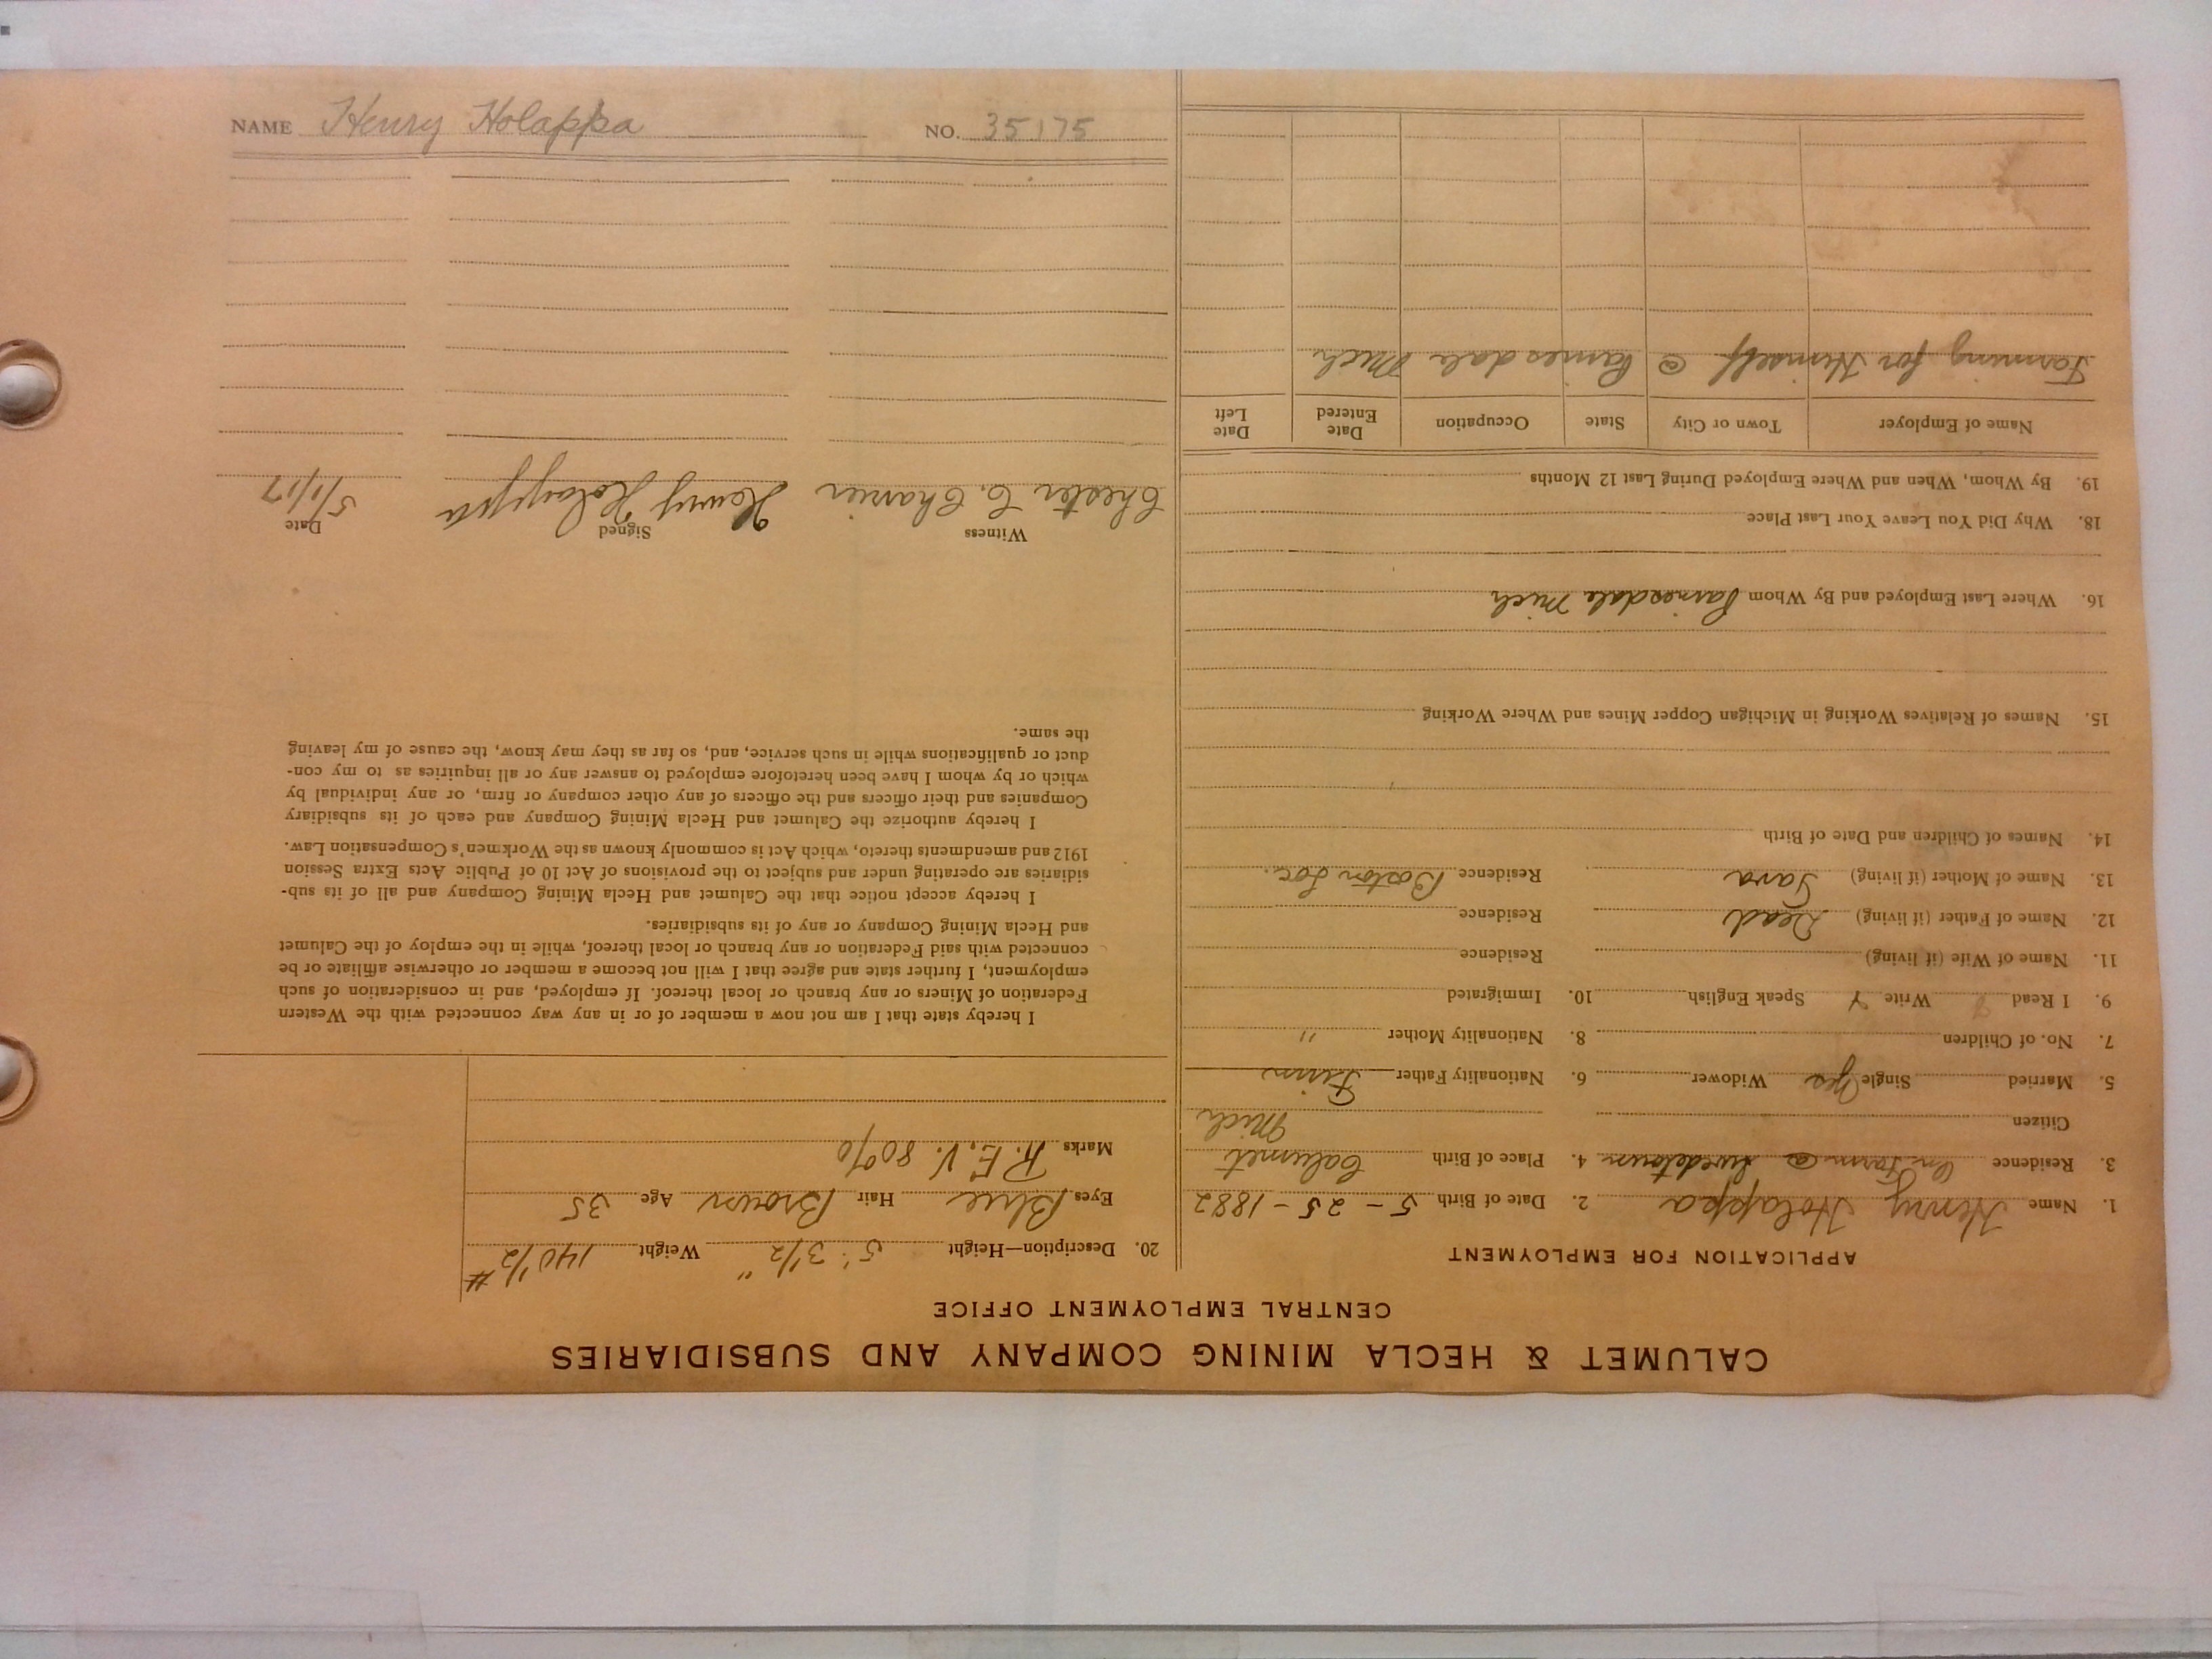 CALUMET & HECLA MINING COMPANY AND SUBSIDIARIES
CENTRAL EMPLOYMENT OFFICE
APPLICATION FOR EMPLOYMENT
1. Name Henry Holappa 2. Date of Birth 5 - 25 - 1882
3. Residence On Farm @ Swedetown 4. Place of Birth Calumet
Citizen Mich
5. Married Single Yes Widower 6. Nationality Father Finn
7. No. of Children 8. Nationality Mother "
9. I Read Y Write Y Speak English 10. Immigrated
11. Name of Wife (if living) Residence
12. Name of Father (if living) Dead Residence
13. Name of Mother (if living) Sara Residence Boston Loc.
14. Names of Children and Date of Birth
15. Names of Relatives Working in Michigan Copper Mines and Where Working
16. Where Last Employed and By Whom Painesdale Mich
18. Why Did You Leave Your Last Place
19. By Whom, When and Where Employed During Last 12 Months
Name of Employer Town or City State Occupation Date Entered Date Left
Farming for Himself @ Painesdale Mich
20. Description—Height 5' 3 1/2" Weight 140 1/2 #
Eyes Blue Hair Brown Age 35
Marks R. E. V. 80%
I hereby state that I am not now a member of or in any way connected with the Western
Federation of Miners or any branch or local thereof. If employed, and in consideration of such
employment, I further state and agree that I will not become a member or otherwise affiliate or be
connected with said Federation or any branch or local thereof, while in the employ of the Calumet
and Hecla Mining Company or any of its subsidiaries.
I hereby accept notice that the Calumet and Hecla Mining Company and all of its sub-
sidiaries are operating under and subject to the provisions of Act 10 of Public Acts Extra Session
1912 and amendments thereto, which Act is commonly known as the Workmen's Compensation Law.
I hereby authorize the Calumet and Hecla Mining Company and each of its subsidiary
Companies and their officers and the officers of any other company or firm, or any individual by
which or by whom I have been heretofore employed to answer any or all inquiries as to my con-
duct or qualifications while in such service, and, so far as they may know, the cause of my leaving
the same.
Witness Signed Date
Chester C. Henry Holappa 5/1/17
NAME Henry Holappa NO. 35175